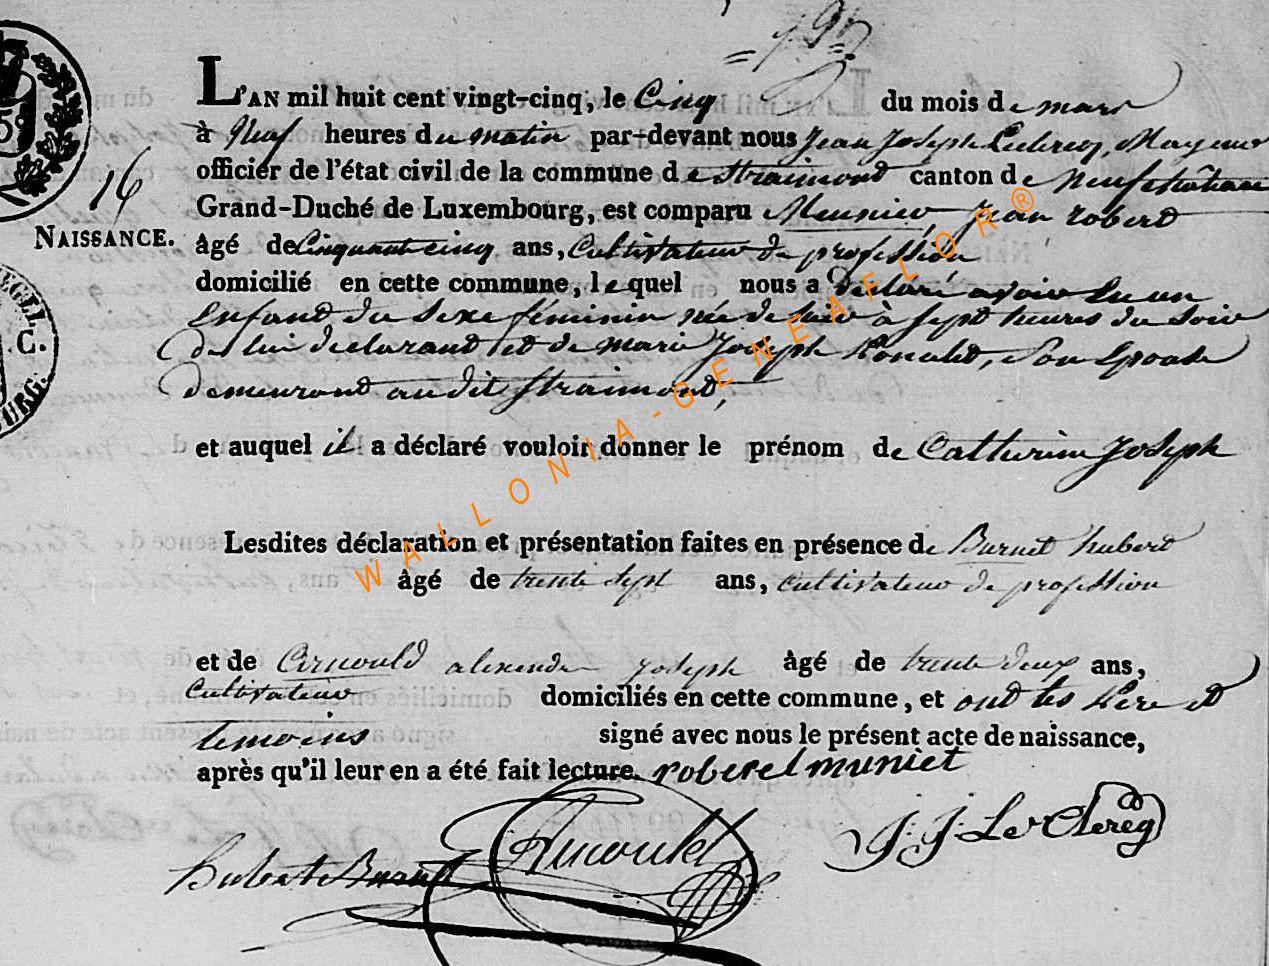 L'AN mil huit cent vingt-cinq, le Cinq du mois de mars
à Neuf heures du matin par-devant nous Jean Joseph Leclercq, Mayeur
officier de l'état civil de la commune de straimont canton de Neufchâteau
16
Grand-Duché de Luxembourg, est comparu Meunier, Jean robert
NAISSANCE.
âgé de Cinquant cinq ans, Cultivateur de profession
domicilié en cette commune, lequel nous a déclaré avoir eu un
Enfant du Sexe féminin née de hier à Sept heures du Soir
de lui déclarant et de marie Joseph, Son Epouse
demeurant audit Straimont,
et auquel il a déclaré vouloir donner le prénom de Catherine Joseph
Lesdites déclaration et présentation faites en présence de Burnet hubert
âgé de trente Sept ans, cultivateur de profession
et de Arnould alexendre joseph âgé de trente deux ans,
Cultivateur domiciliés en cette commune, et ont les Pere et
temoins signé avec nous le présent acte de naissance,
après qu'il leur en a été fait lecture. robert muniet
J J Le Clercq
Arnould
hubert Burnet
WALLONIA-GENEAFLOR®